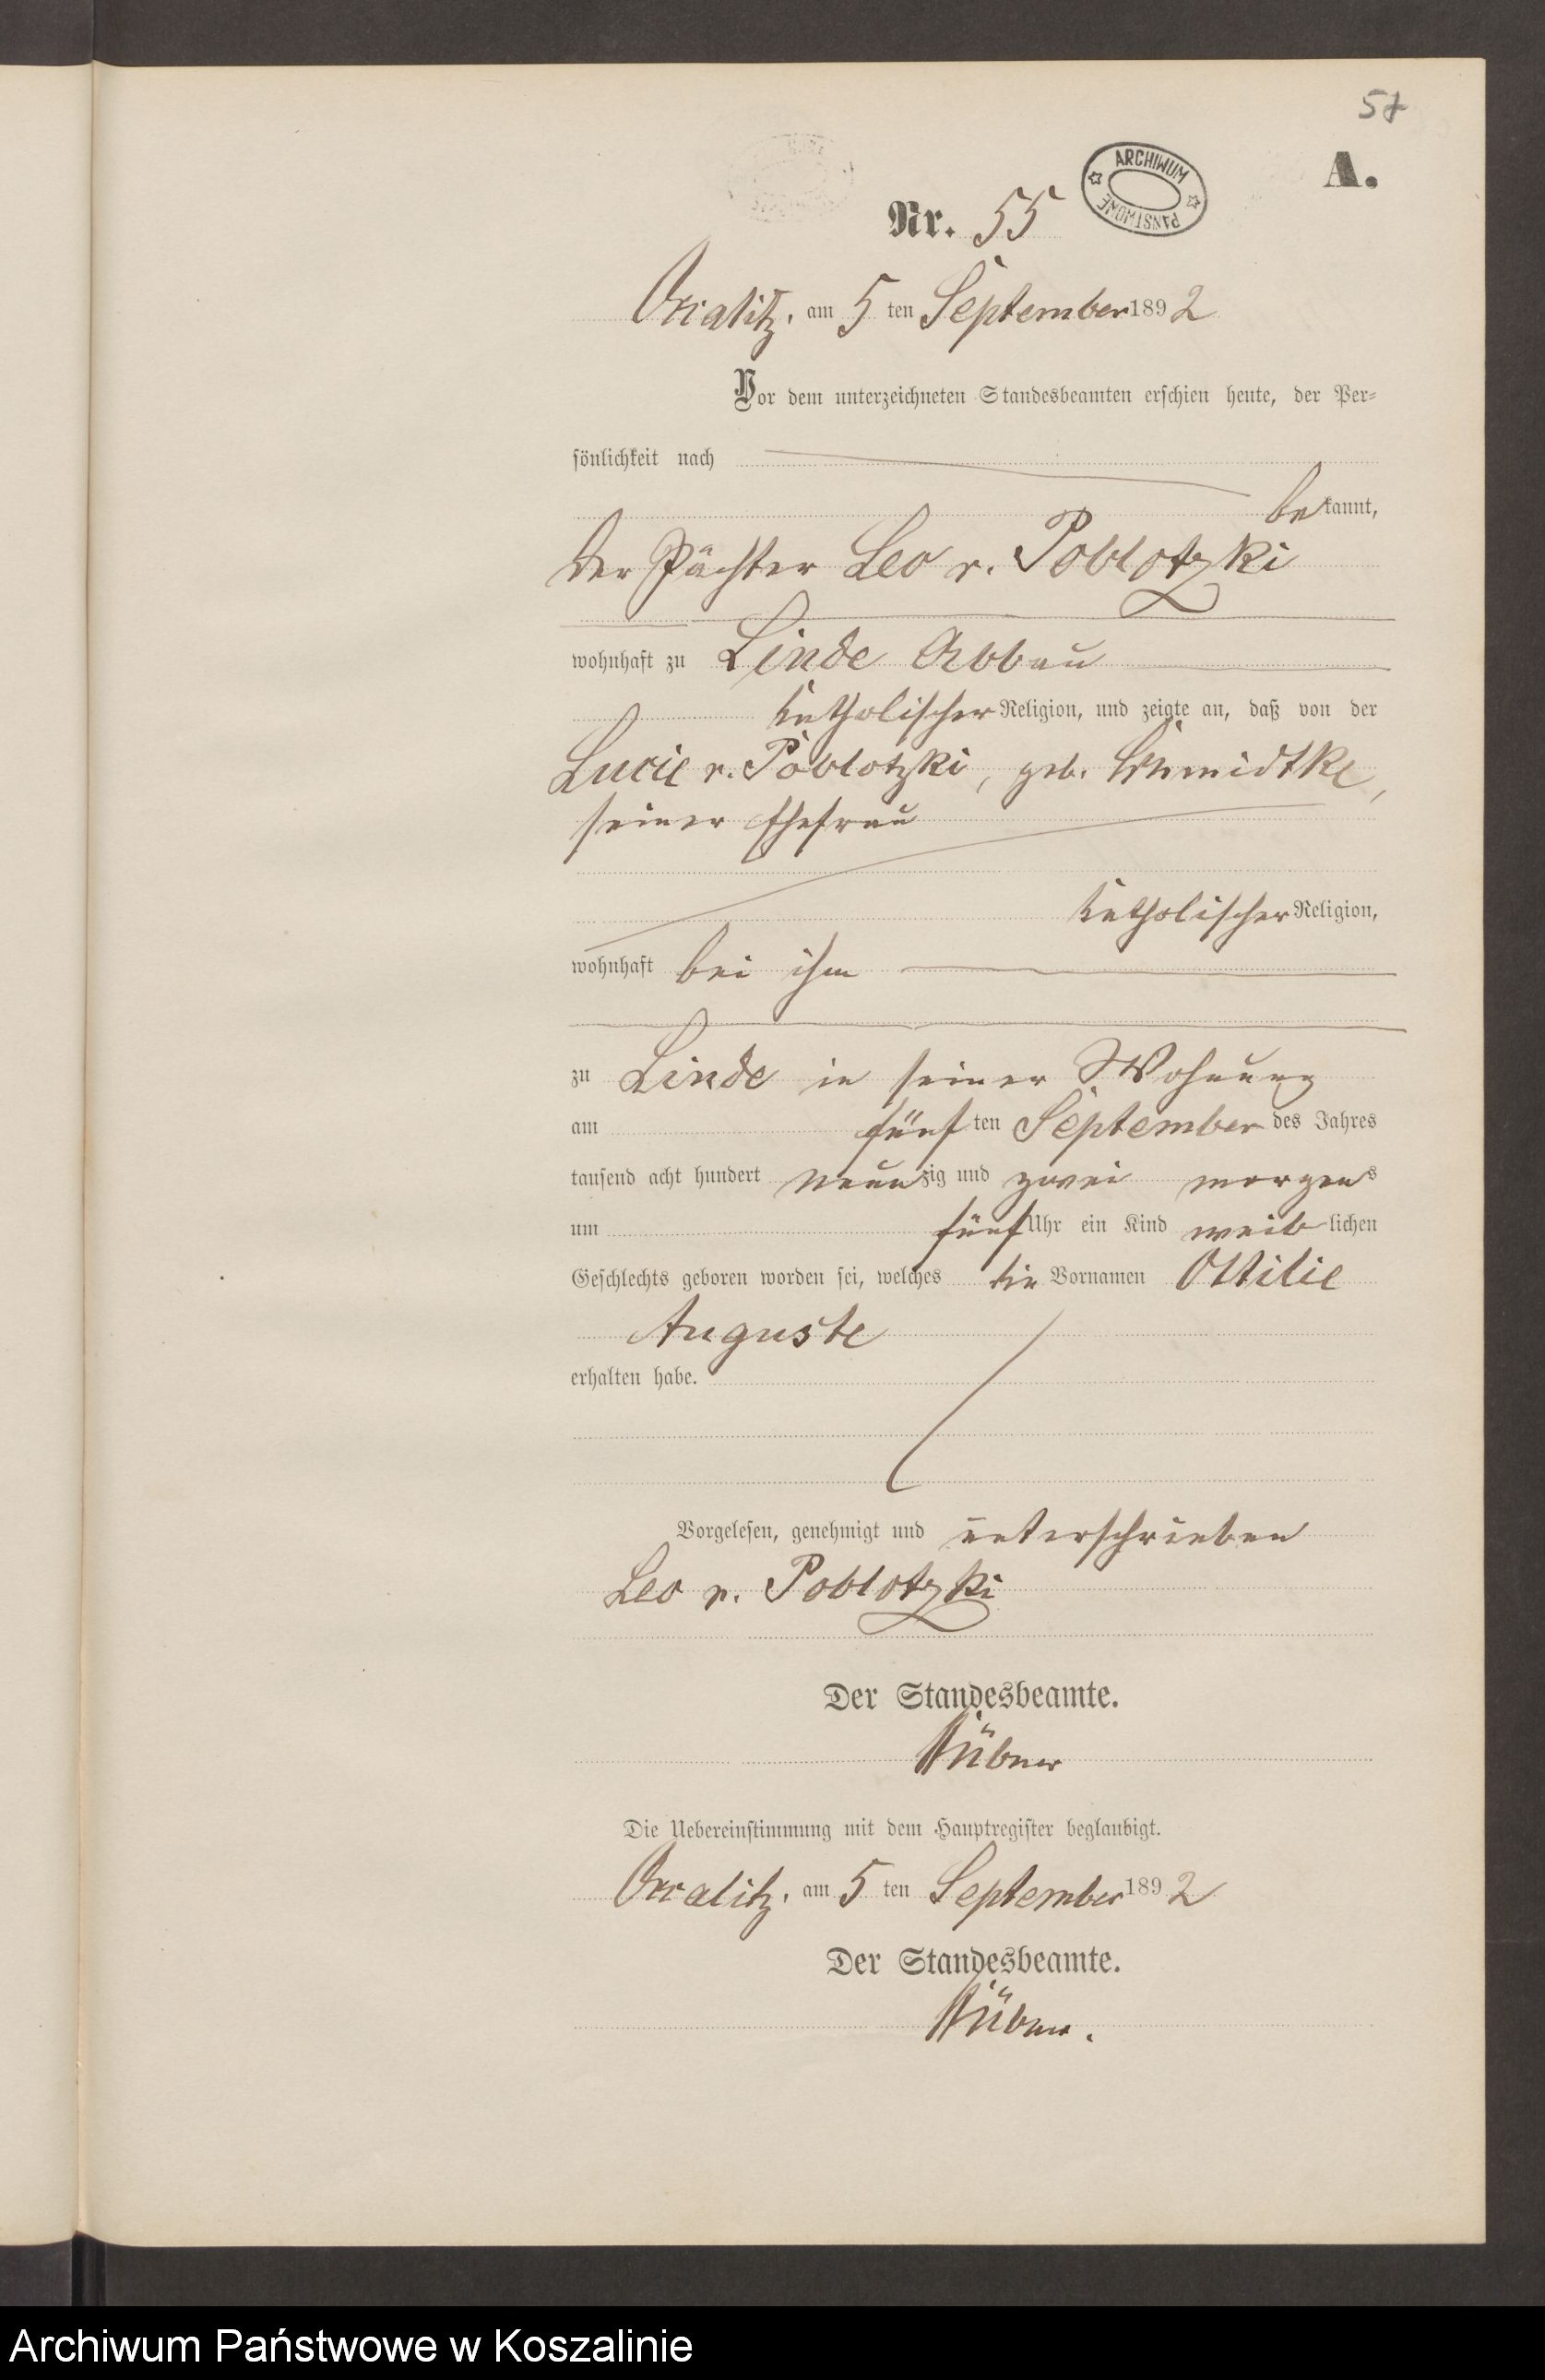 57
A.
ARCHIWUM PAŃSTWOWE
Nr. 55
am 5 ten September 1892
Vor dem unterzeichneten Standesbeamten erschien heute, der Per-
sönlichkeit nach
bekannt,
der Pächter Leo v. Poblotzki
wohnhaft zu Linde Abbau
katholischer Religion, und zeigte an, daß von der
Lucie v. Poblotzki, geb. Schmidtke,
seiner Ehefrau
katholischer Religion,
wohnhaft bei ihm
zu Linde in seiner Wohnung
am fünften September des Jahres
tausend acht hundert neunzig und zwei morgens
um fünf Uhr ein Kind weiblichen
Geschlechts geboren worden sei, welches die Vornamen Ottilie
Auguste
erhalten habe.
Vorgelesen, genehmigt und unterschrieben
Leo v. Poblotzki
Der Standesbeamte.
Die Uebereinstimmung mit dem Hauptregister beglaubigt.
am 5 ten September 1892
Der Standesbeamte.
Archiwum Państwowe w Koszalinie